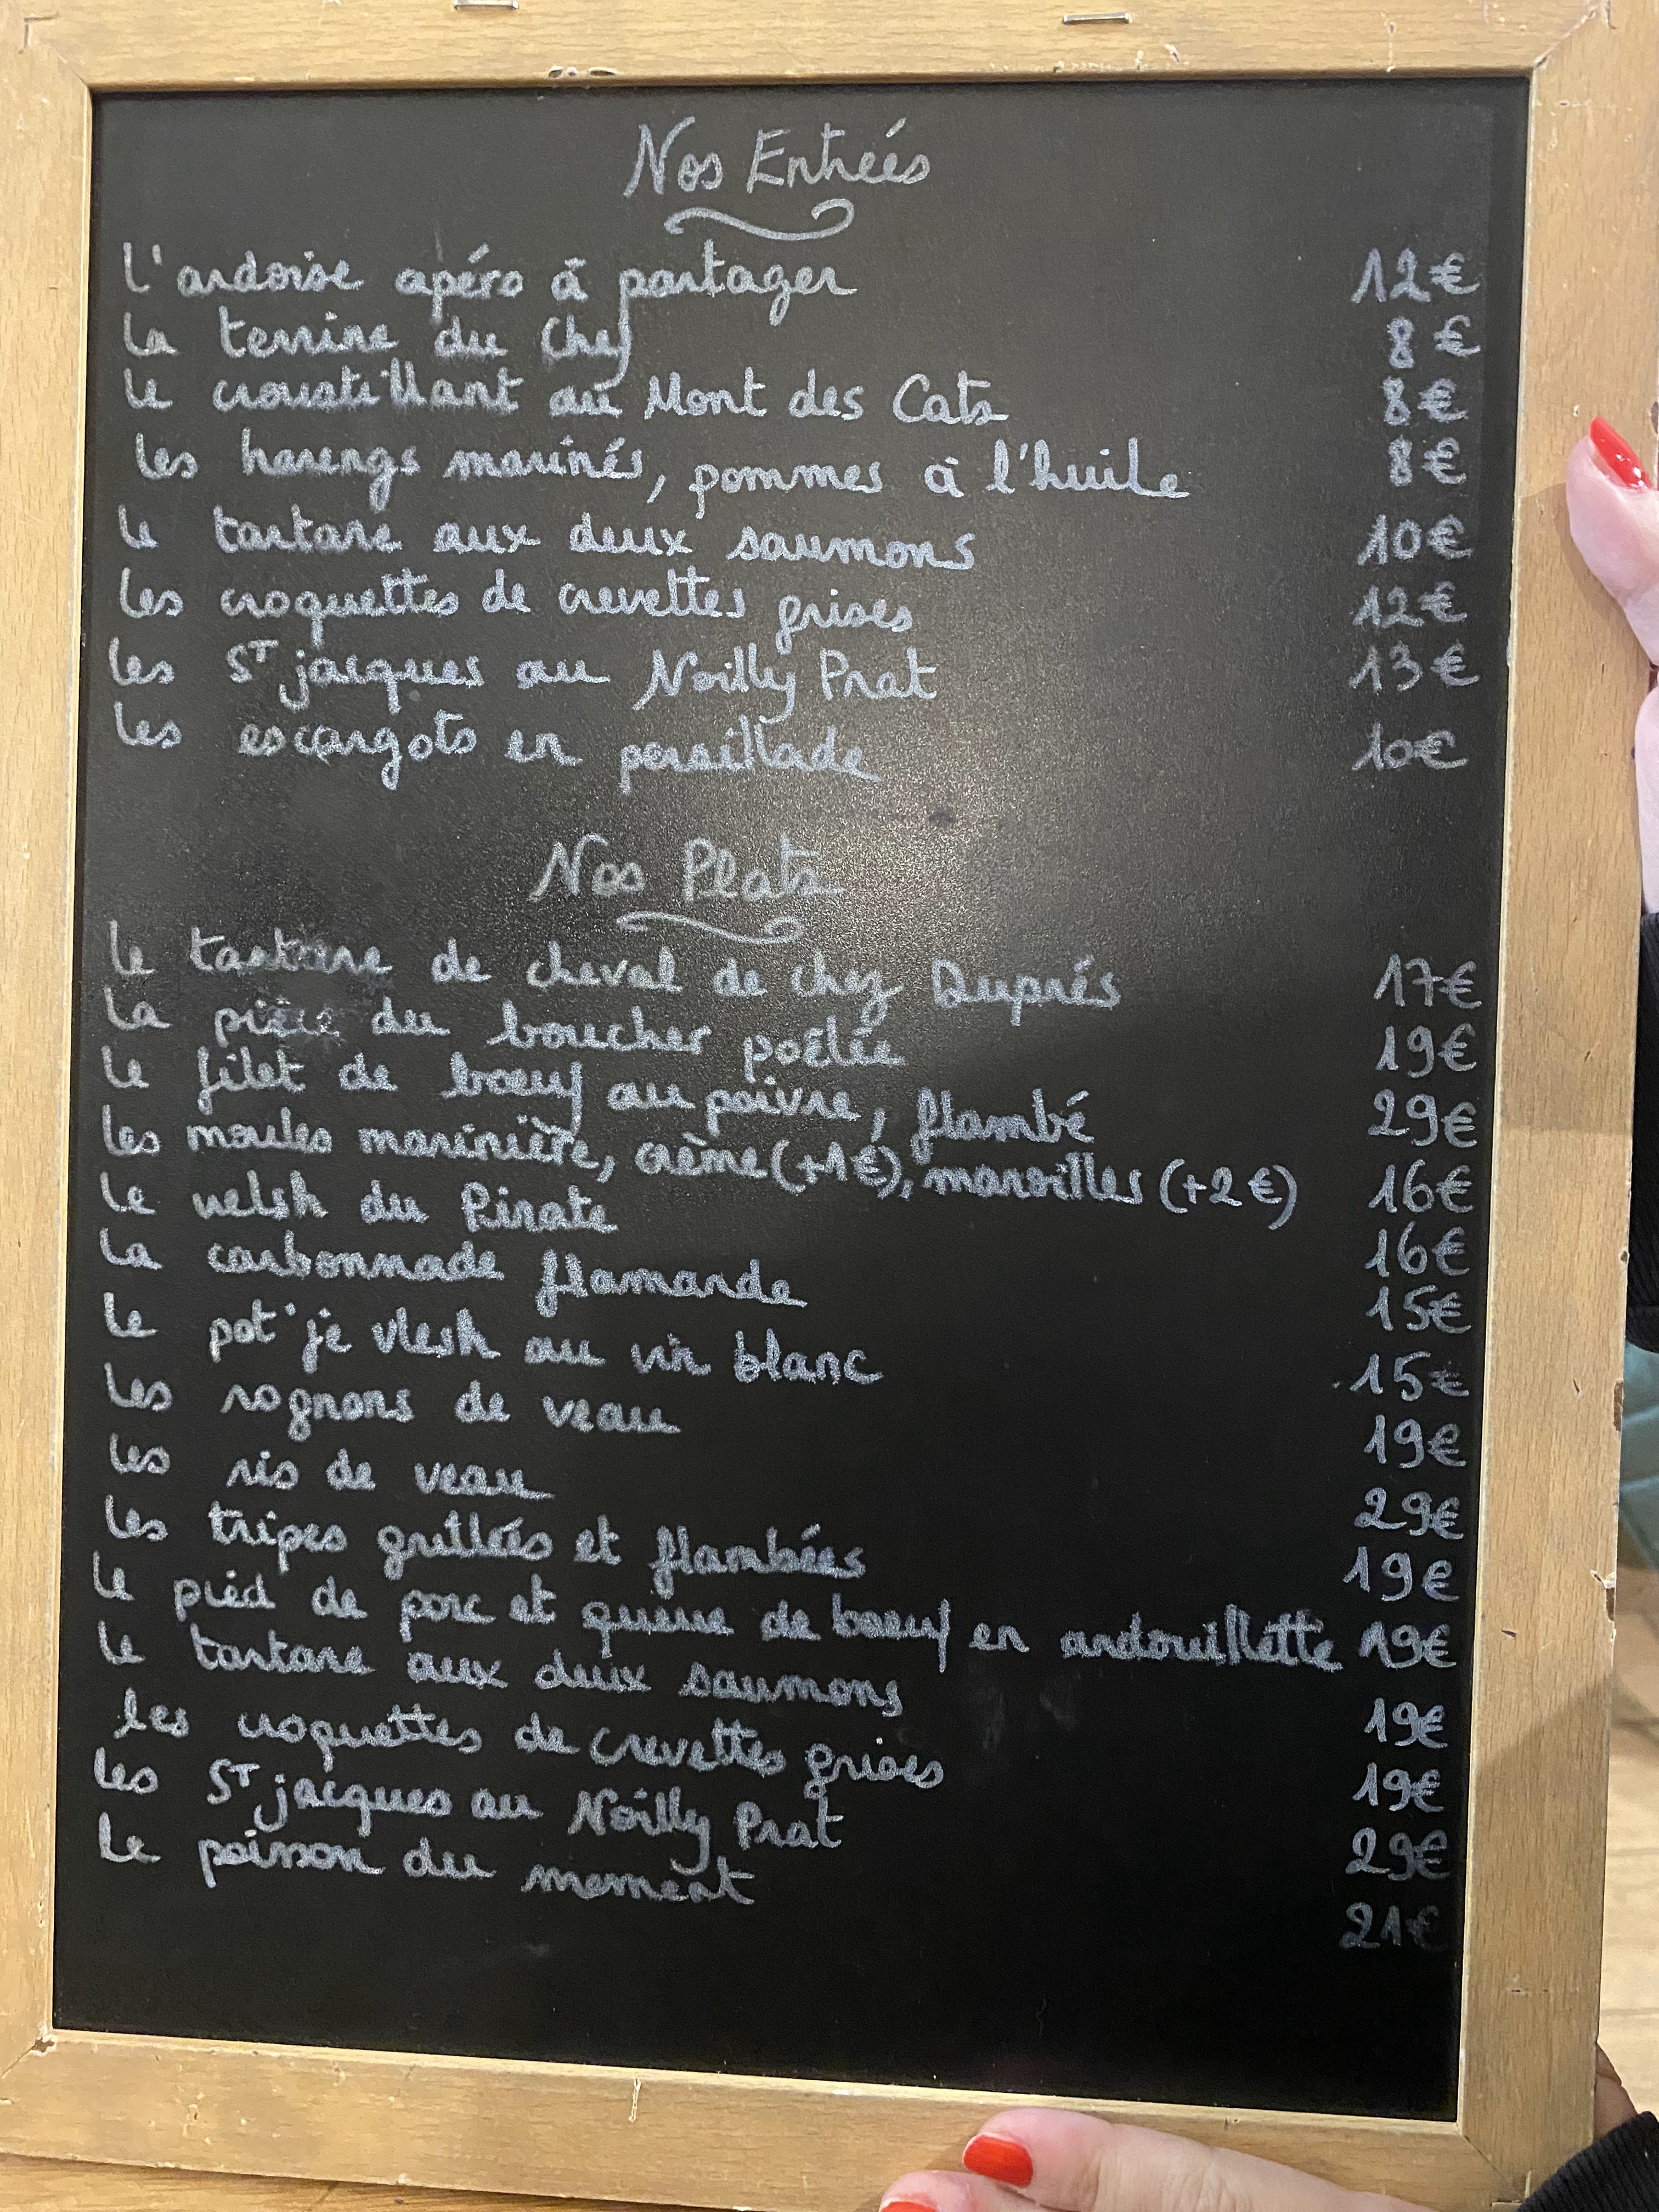 Nos Entrées
l'ardoise apéro à partager 12€
la terrine du Chef 8€
le croustillant au Mont des Cats 8€
les harengs marinés, pommes à l'huile 8€
le tartare aux deux saumons 10€
les croquettes de crevettes grises 12€
les ST jacques au Noilly Prat 13€
les escargots en persillade 10€
Nos Plats
le tartare de cheval de chez Duprés 17€
la pièce du boucher poêlée 19€
le filet de bœuf au poivre, flambé 29€
les moules marinière, crème (+1€), maroilles (+2€) 16€
le welsh du Pirate 16€
la carbonnade flamande 15€
le pot'je vlesh au vin blanc 15€
les rognons de veau 19€
les ris de veau 29€
les tripes grillées et flambées 19€
le pied de porc et queue de bœuf en andouillette 19€
le tartare aux deux saumons 19€
les croquettes de crevettes grises 19€
les ST jacques au Noilly Prat 29€
le poisson du moment 21€